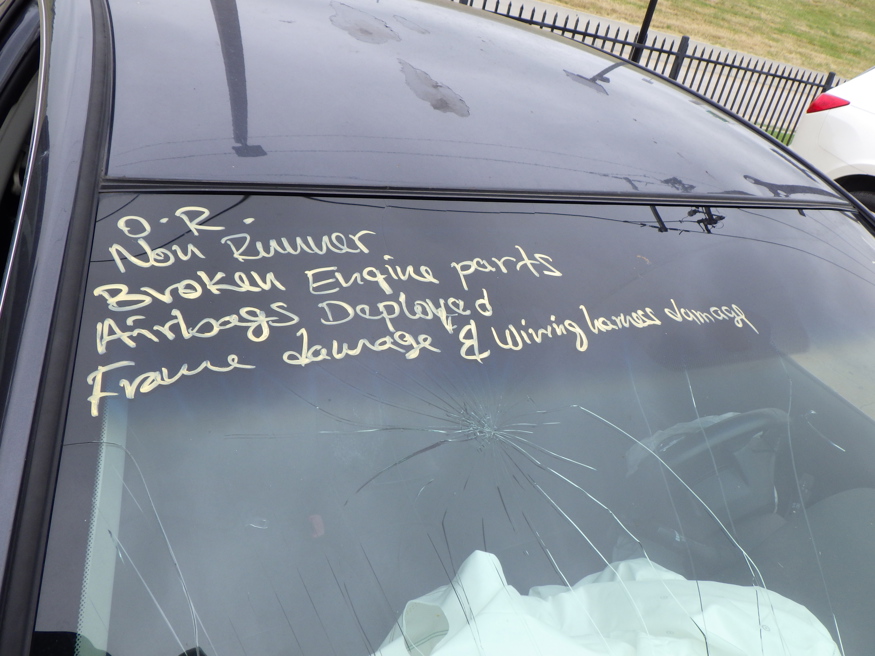 O.R.
Non Runner
Broken Engine parts
Airbags Deployed
Frame damage & Wiring harness damage